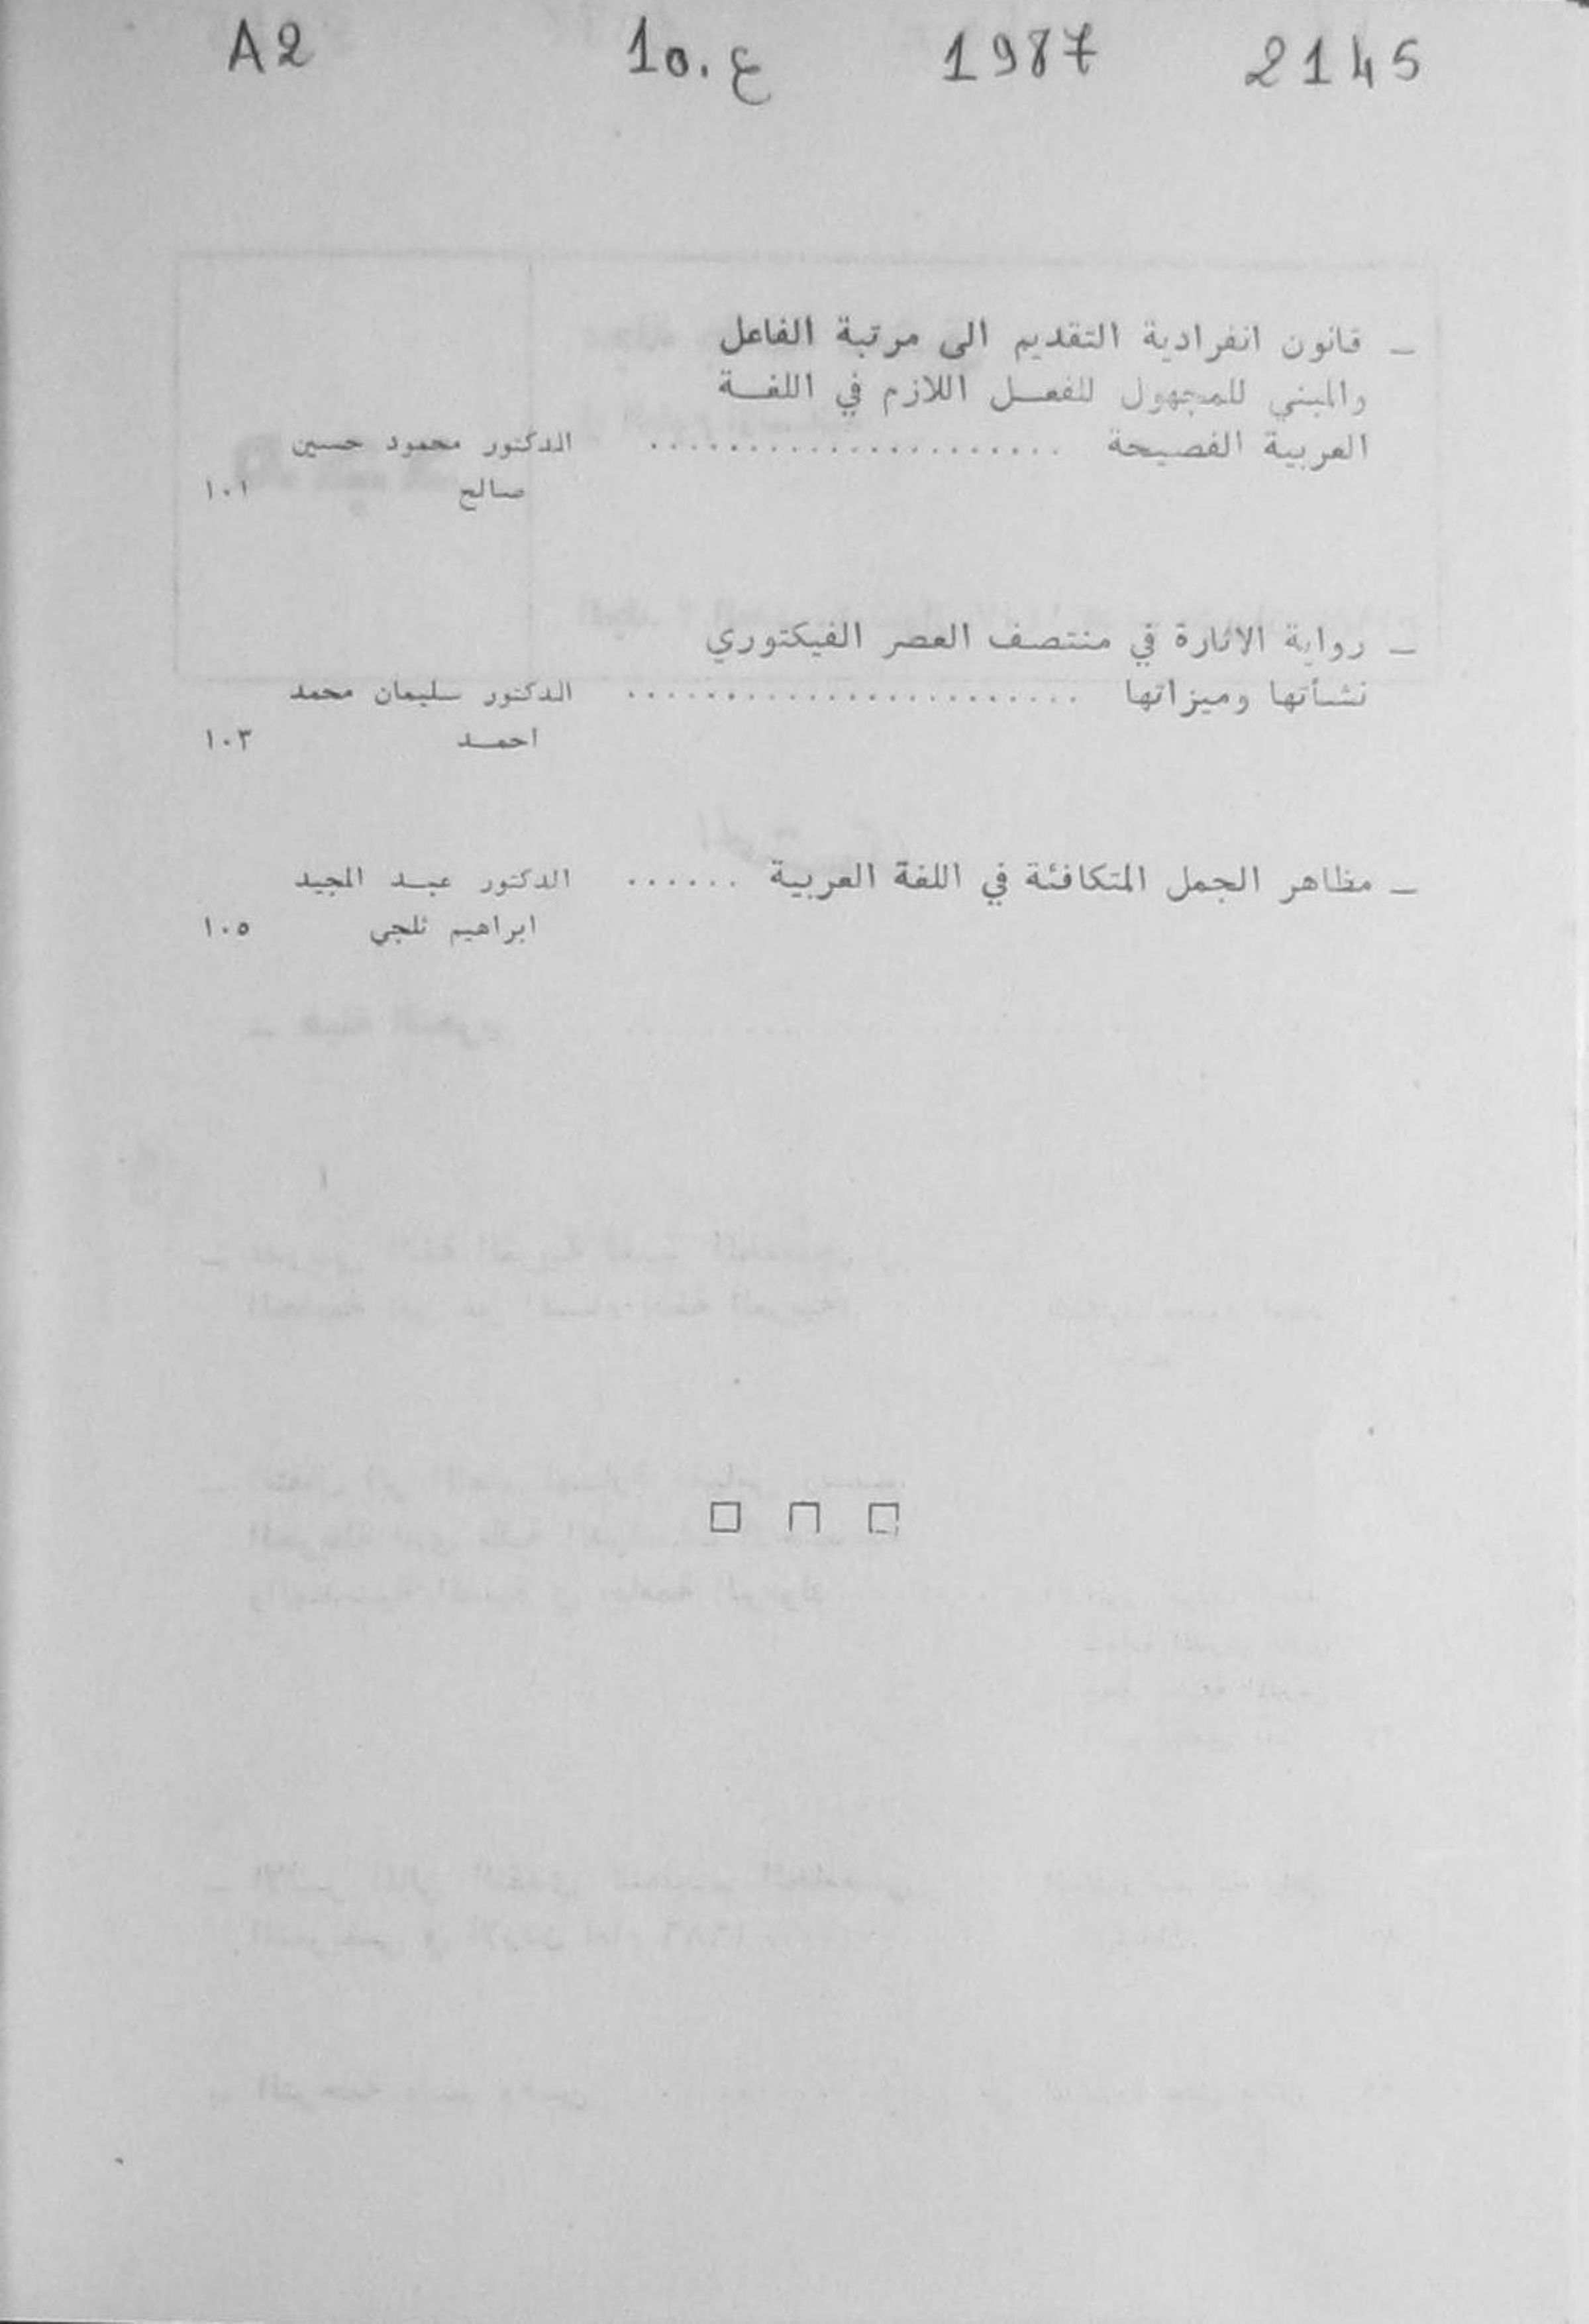 A2 10.ع 1987 2145
ـ قانون انفرادية التقديم الى مرتبة الفاعل
والمبني للمجهول للفعـــل اللازم في اللغـــة
العربية الفصيحة ..................... الدكتور محمود حسين
صالح ١٠١
ـ رواية الاثارة في منتصف العصر الفيكتوري
نشأتها وميزاتها ....................... الدكتور سليمان محمد
احمـــد ١٠٣
ـ مظاهر الجمل المتكافئة في اللغة العربية ...... الدكتور عبـــد المجيد
ابراهيم ثلجي ١٠٥